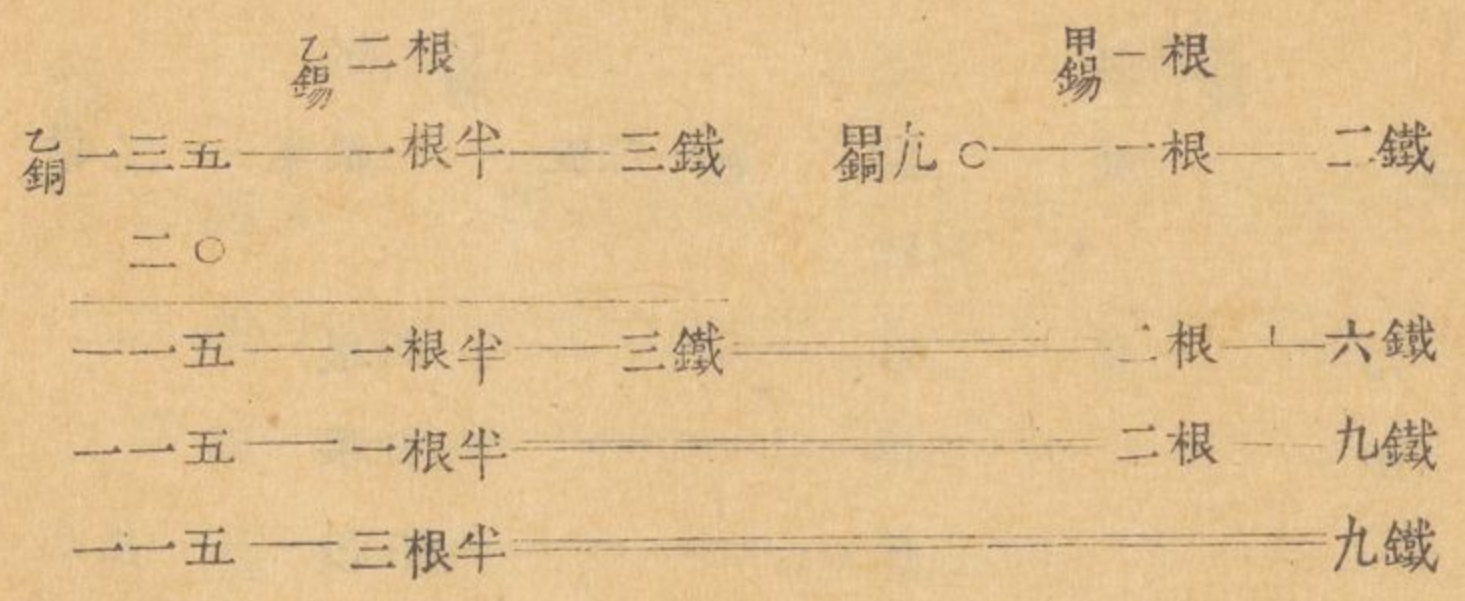 乙錫二根 甲錫一根
乙銅一三五——一根半——三鐵 甲銅九〇——一根——二鐵
二〇
一一五——一根半——三鐵══二根⊥六鐵
一一五——一根半══二根——九鐵
一一五——三根半══九鐵